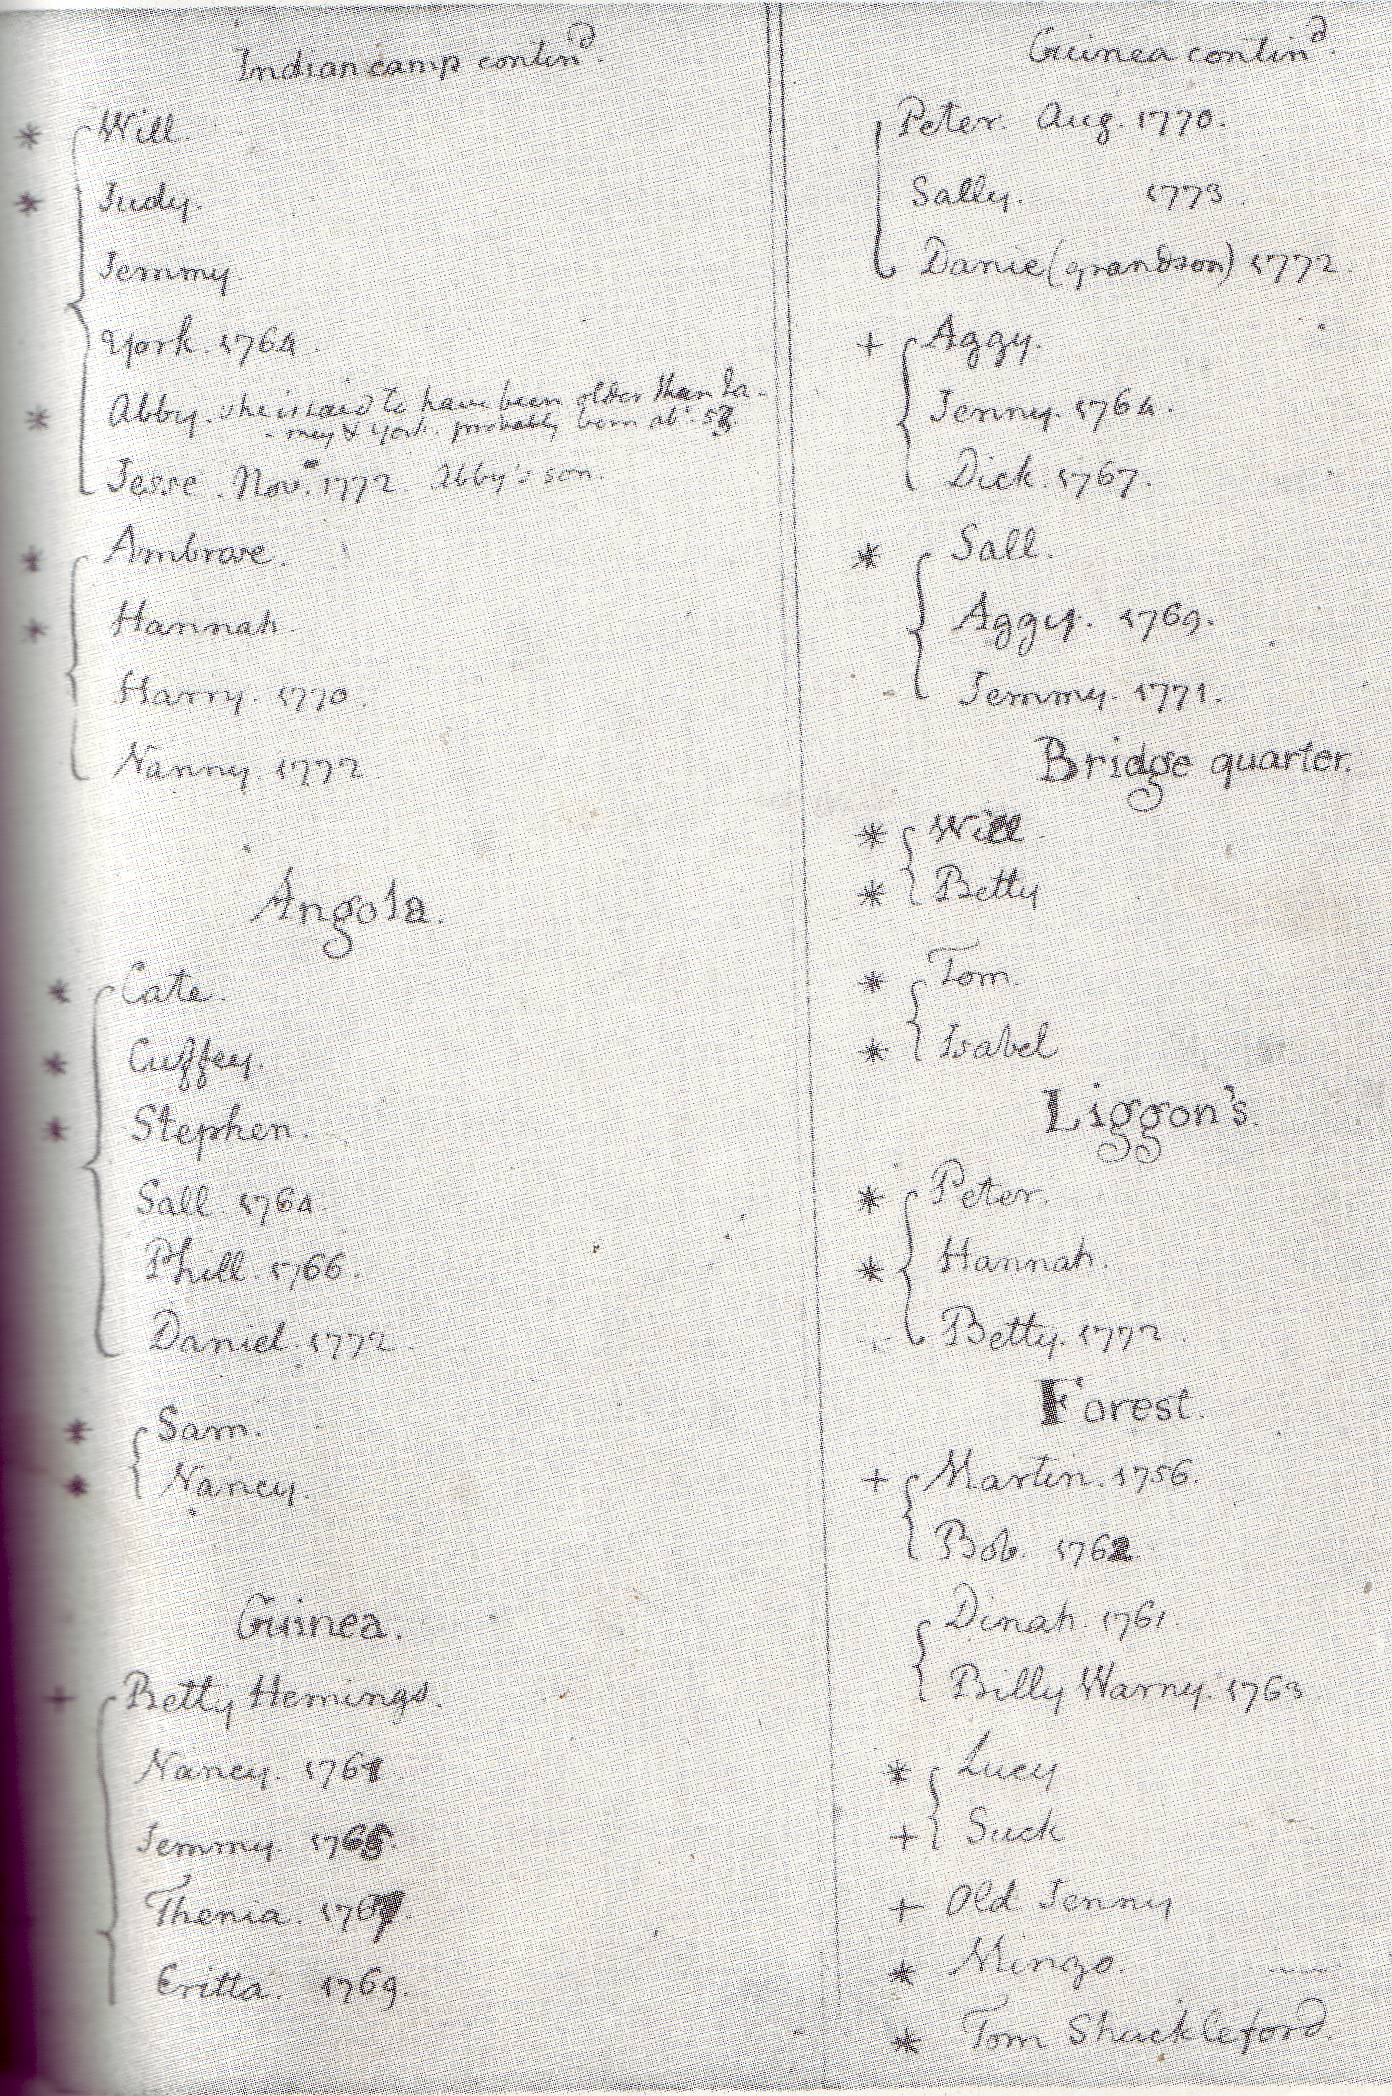 Indian camp contin^d.
* Will.
* Judy.
Jemmy.
York. 1764.
* Abby. she is said to have been older than Ja-
-mey & York. probably born ab^t. 53.
Jesse. Nov. 1772. Abby's son.
* Ambrose.
* Hannah.
Harry. 1770
Nanny. 1772
Angola.
* Cate.
* Cuffey.
* Stephen.
Sall 1764
Phill. 1766.
Daniel. 1772
* Sam.
* Nancy.
Guinea.
+ Betty Hemings.
Nancy. 1761
Jemmy. 1765.
Thenia. 1767.
Critta. 1769.
Guinea contin^d.
Peter. Aug. 1770.
Sally. 1773.
Danie (grandson) 1772.
+ Aggy.
Jenny. 1764.
Dick. 1767.
* Sall.
Aggy. 1769.
Jemmy. 1771.
Bridge quarter.
* Will.
* Betty
* Tom.
* Isabel
Liggon's.
* Peter.
* Hannah.
Betty. 1772.
Forest.
+ Martin. 1756.
Bob. 1762.
Dinah. 1761.
Billy Warny. 1763
* Lucy
+ Suck
+ Old Jenny
* Mingo.
* Tom Shackleford.